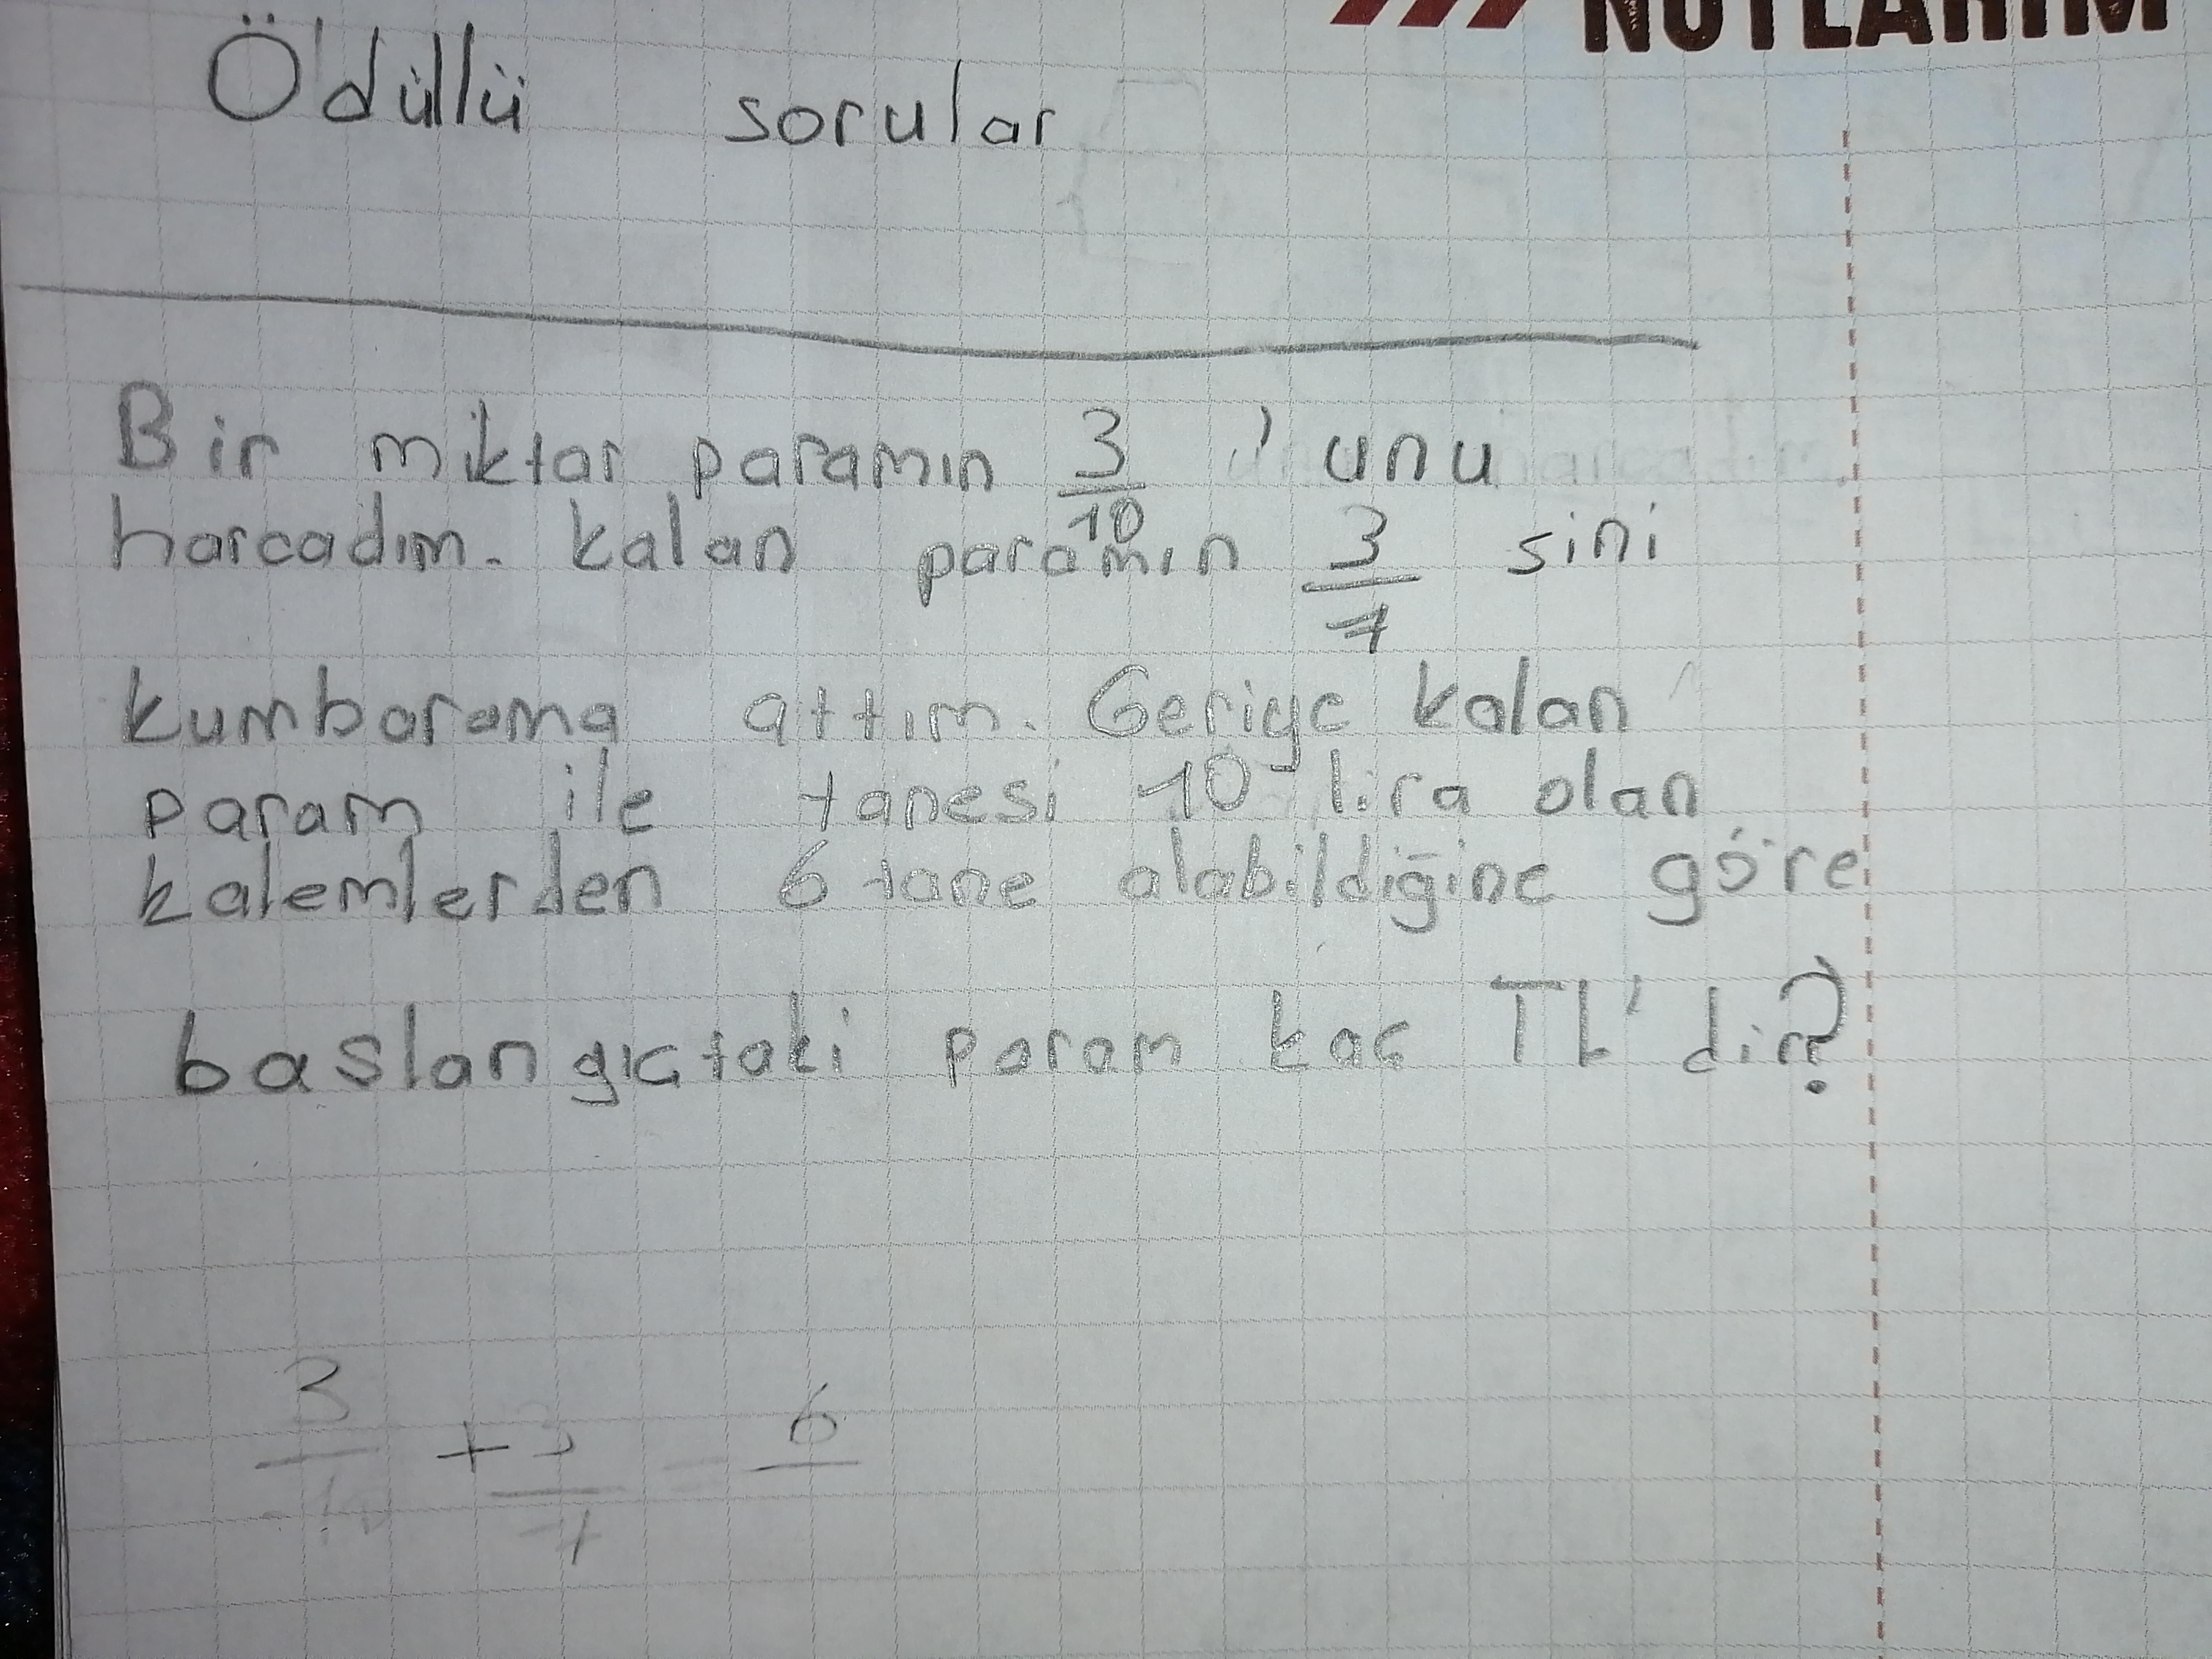 NOTLARIM
Ödüllü sorular
Bir miktar paramın 3/10 'unu
harcadım. kalan paramın 3/7 sini
kumbarama attım. Geriye kalan
param ile tanesi 10 lira olan
kalemlerden 6 tane alabildiğine göre
baslangıçtaki param kaç TL'dir?
3/10 + 3/7 = 6/